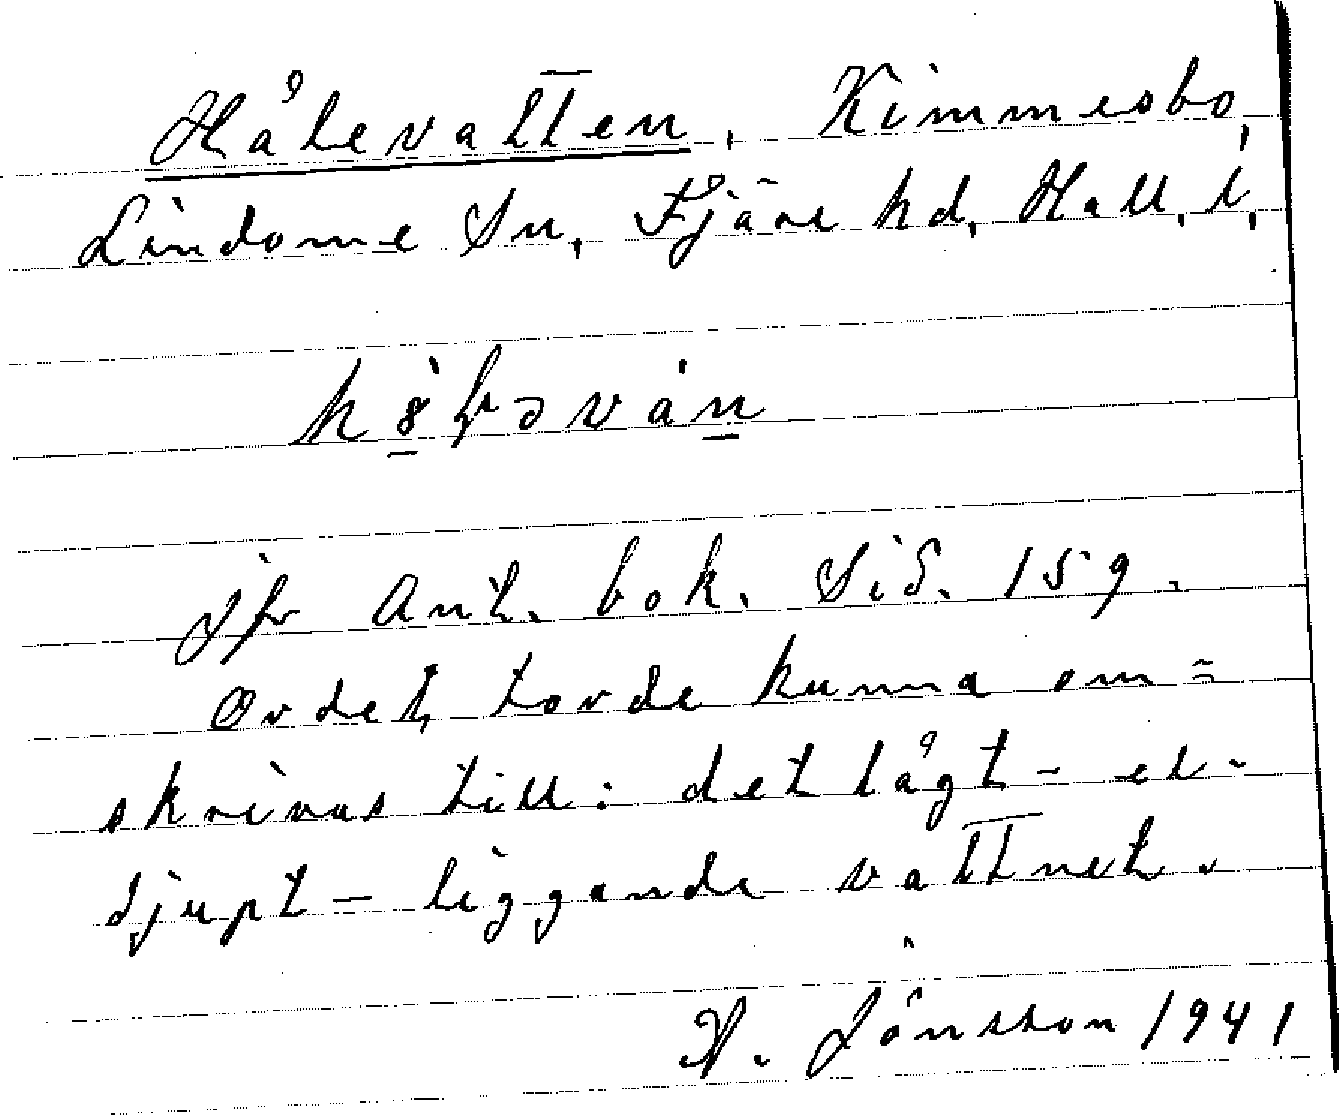 Hålevatten, Kimmesbo,
Lindome Sn, Fjäre hd, Hall. l.
Jfr Ant. bok. Sid. 159.
Ordet torde kunna om=
skrivas till: det lågt - el-
djupt - liggande vattnet.
A. Jönsson 1941